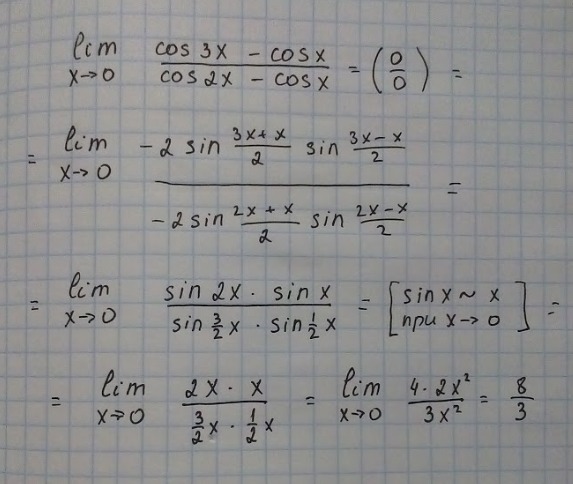 lim x→0 (cos 3x - cos x)/(cos 2x - cos x) = (0/0) =
= lim x→0 (-2 sin (3x+x)/2 sin (3x-x)/2)/(-2 sin (2x+x)/2 sin (2x-x)/2) =
= lim x→0 (sin 2x · sin x)/(sin 3/2 x · sin 1/2 x) = [sin x ~ x при x→0] =
= lim x→0 (2x · x)/(3/2 x · 1/2 x) = lim x→0 (4·2x²)/(3x²) = 8/3